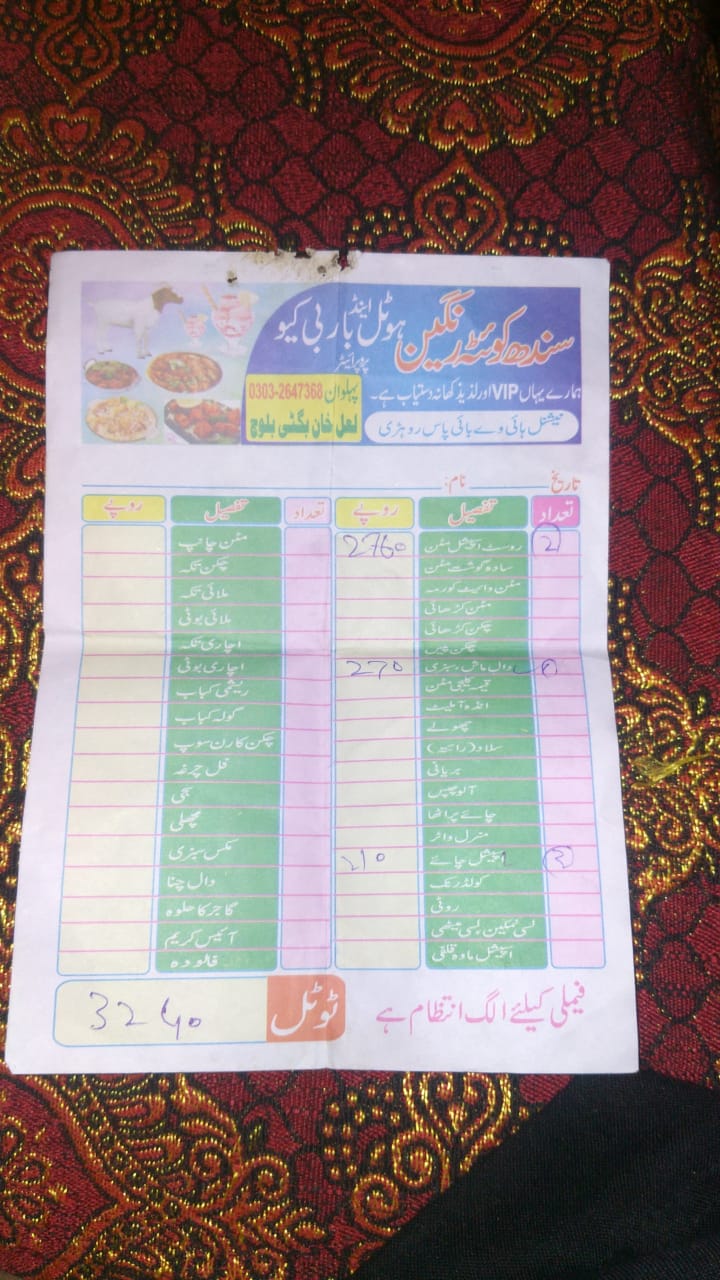 سندھ کوئٹہ رنگین ہوٹل اینڈ باربی کیو
پروپرائیٹر
ہمارے یہاں VIP اور لذیذ کھانہ دستیاب ہے۔
پہلوان 0303-2647368
لعل خان بگٹی بلوچ
نیشنل ہائی وے بائی پاس روہڑی
تاریخ نام:
تعداد تفصیل روپے تعداد تفصیل روپے
2 روسٹ اسپیشل مٹن 2760 مٹن چانپ
سادہ گوشت مٹن چکن تکہ
مٹن وائیٹ کورمہ ملائی تکہ
مٹن کڑھائی ملائی بوٹی
چکن کڑھائی اچاری تکہ
دال ماش، سبزی 270 اچاری بوٹی
قیمہ کلیجی مٹن ریشمی کباب
انڈہ آملیٹ گولہ کباب
چھولے چکن کارن سوپ
سلاد (رائیتہ) فل چرغہ
بریانی سجی
آلو چپس مچھلی
چائے پراٹھا مکس سبزی
منرل واٹر دال چنا
3 اسپیشل چائے 210 گاجر کا حلوہ
کولڈ رنک آئیس کریم
روٹی فالودہ
لسی نمکین، لسی میٹھی
اسپیشل ماوہ قلفی
فیملی کیلئے الگ انتظام ہے
ٹوٹل 3240